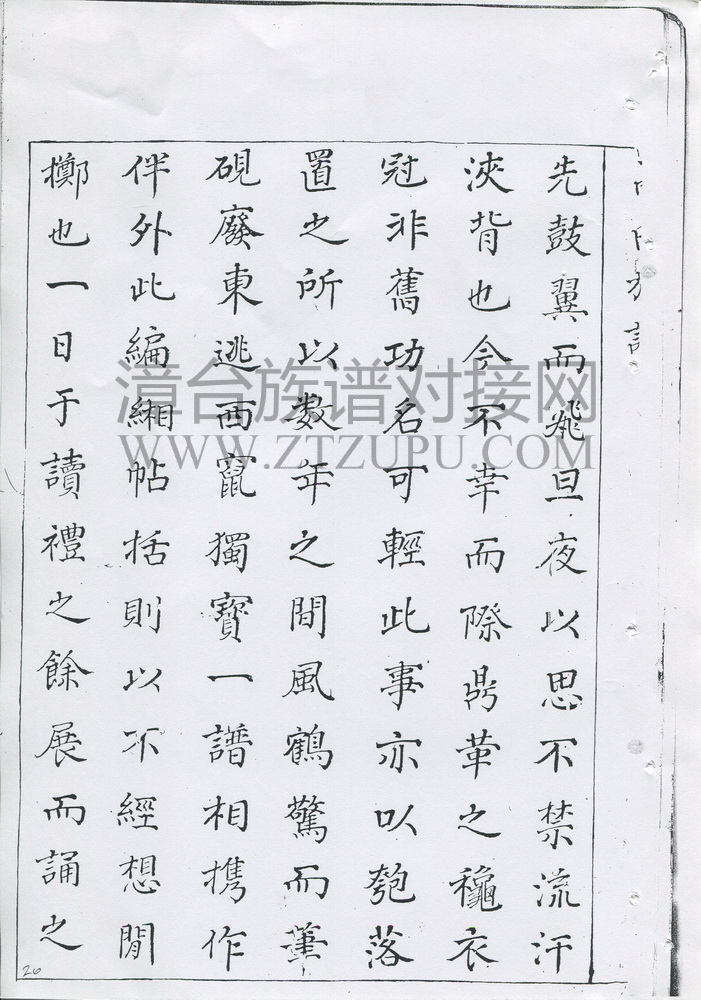 先鼓翼而飛旦夜以思不禁流汗
浹背也今不幸而際鼎革之穐衣
冠非舊功名可輕此事亦以匏落
置之所以数年之間風鶴驚而筆
硯廢東逃西竄獨寳一譜相携作
伴外此編緗帖括則以不經想閒
擲也一日于讀禮之餘展而誦之
漳台族谱对接网
WWW.ZTZUPU.COM
20